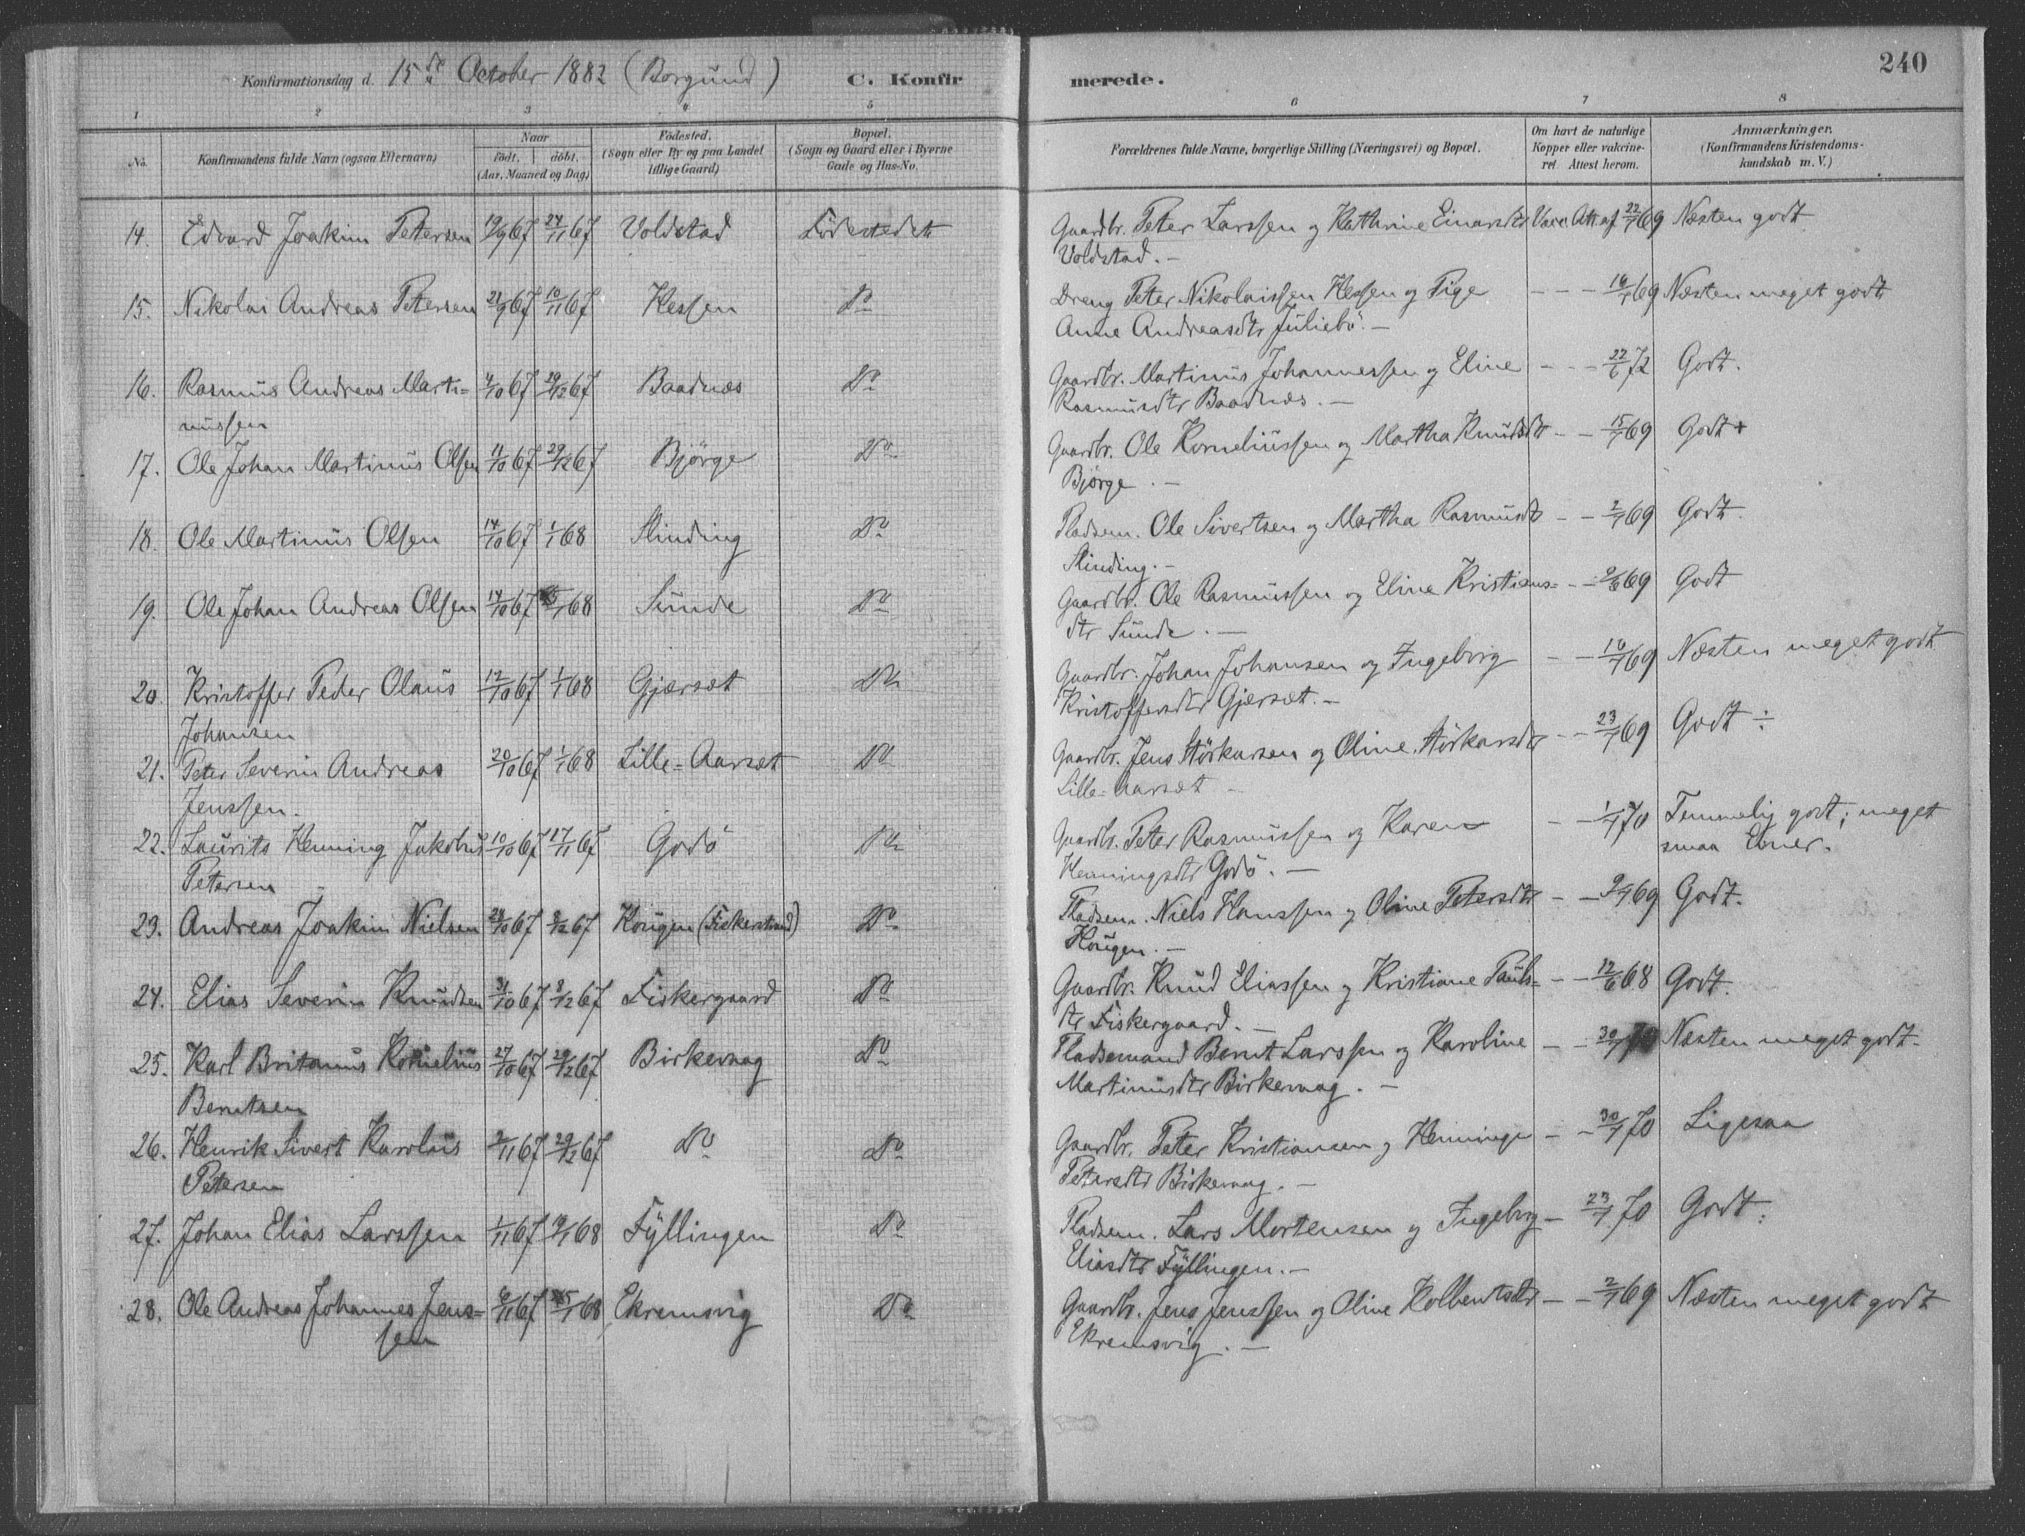 240
Konfirmationsdag d. 15de October 1882 (Borgund) C. Konfir merede.
1 2 3 4 5 6 7 8
No. Konfirmandens fulde Navn (ogsaa Efternavn) Naar født. døbt. (Aar, Maaned og Dag) Födested. (Sogn eller By og paa Landet tillige Gaard) Bopæl. (Sogn og Gaard eller i Byerne Gade og Hus-No. Forældrenes fulde Navne, borgerlige Stilling (Næringsvei) og Bopæl. Om havt de naturlige Kopper eller vakcineret Attest herom. Anmærkninger. (Konfirmandens Kristendomskundskab m. V.)
14. Edvard Joakim Petersen 19/9 67 24/11 67 Voldstad Fødestedet Gaardbr. Peter Larssen og Kathrine Einarsdtr Vacc. Att. af 22/7 69 Næsten godt
Voldstad. –
15. Nikolai Andreas Petersen 21/9 67 10/11 67 Hessen Do Dreng Peter Nikolaissen Hessen og Pige – – – 16/7 69 Næsten meget godt
Anne Andreasdtr Juliebö. –
16. Rasmus Andreas Marti= 4/10 67 29/12 67 Baadnæs Do Gaardbr. Martinus Johannessen og Eline – – – 22/6 72 Godt.
nussen Rasmusdtr Baadnæs. –
17. Ole Johan Martinus Olsen 11/10 67 29/12 67 Bjørge Do Gaardbr. Ole Korneliussen og Martha Knudsdtr – – 15/7 69 Godt +
Bjørge. –
18. Ole Martinus Olsen 14/10 67 1/1 68 Slinding Do Pladsem. Ole Sivertsen og Martha Rasmusdtr – – 2/7 69 Godt.
Slinding. –
19. Ole Johan Andreas Olsen 14/10 67 /1 68 Sunde Do Gaardbr. Ole Rasmussen og Eline Kristians= – – 9/6 69 Godt
dtr Sunde. –
20. Kristoffer Peder Olaus 12/10 67 1/1 68 Gjærsæt Do Gaardbr. Johan Johansen og Ingeborg – – 10/7 69 Næsten meget godt
Johansen Kristoffersdtr Gjærsæt. –
21. Peter Severin Andreas 20/10 67 1/1 68 Lille-Aarsæt Do Gaardbr. Jens Störkarsen og Oline Störkarsdtr – – 23/7 69 Godt ÷
Jenssen. Lille-Aarsæt –
22. Laurits Henning Jakobus 10/10 67 17/11 67 Godö Do Gaardbr. Peter Rasmussen og Karen – – 1/7 70 Temmelig godt; meget
Petersen Henningsdtr Godö. – smaa Evner.
23. Andreas Joakim Nielsen 28/10 67 8/12 67 Kougen (Fiskerstrand) Do Pladsem. Niels Hanssen og Oline Petersdtr – – 9/7 69 Godt.
Kougen. –
24. Elias Severin Knudsen 31/10 67 8/12 67 Fiskergaard Do Gaardbr. Knud Eliassen og Kristiane Pauls= – – 12/6 68 Godt.
dtr Fiskergaard. –
25. Karl Britanus Kornelius 27/10 67 29/12 67 Birkevaag Do Pladsemand Bernt Larssen og Karoline – – 30/7 70 Næsten meget godt.
Berntsen Martinusdtr Birkevaag. –
26. Henrik Sivert Karolus 2/11 67 29/12 67 Do Do Gaardbr. Peter Kristiansen og Henninge – – 30/7 70 Ligesaa
Petersen Petersdtr Birkevaag. –
27. Johan Elias Larssen 1/11 67 /1 68 Fyllingen Do Pladsem. Lars Mortensen og Ingeborg – 23/7 70 Godt.
Eliasdtr Fyllingen. –
28. Ole Andreas Johannes Jens= 6/11 67 /1 68 Ekremsvig Do Gaardbr. Jens Jenssen og Oline Kolbentsdtr – – 2/7 69 Næsten meget godt
sen Ekremsvig. –